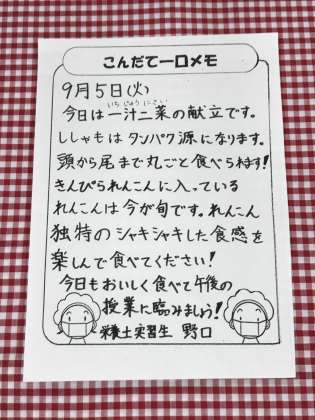 こんだて一口メモ
9月5日(火)
いちじゅうにさい
今日は一汁二菜の献立です。
ししゃもはタンパク源になります。
頭から尾まで丸ごと食べられます!
きんぴられんこんに入っている
れんこんは今が旬です。れんこん
独特のシャキシャキした食感を
楽しんで食べてください!
今日もおいしく食べて午後の
授業に臨みましょう!
栄養士実習生 野口